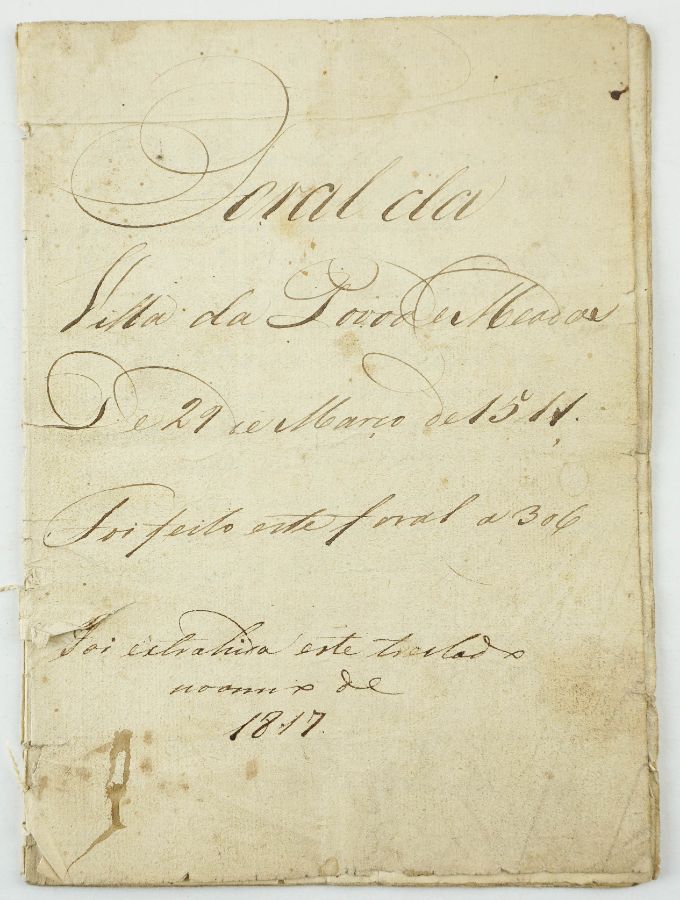 Foral da
Villa da Povoa e Meadas
De 29 de Março de 1511.
Foi feito este foral a 306
Foi extrahido este treslado
no anno de
1817.